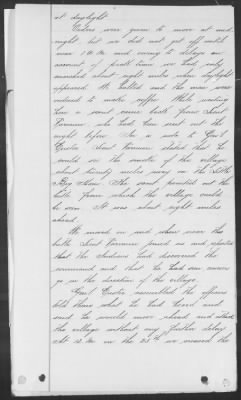 at daylight.
Orders were given to move at mid-
night but we did not get off until
near 1 A.M. and owing to delays on
account of pack train we had only
marched about eight miles when daylight
appeared. We halted and the men were
ordered to make coffee. While waiting
here a scout came back from Lieut
Varnum who had been sent out the
night before. In a note to Genl
Custer Lieut Varnum stated that he
could see the smoke of the village
about twenty miles away on the Little
Big Horn. The scout pointed out the
butte from which the village could
be seen. It was about eight miles
ahead.
We moved on and when near the
butte Lieut Varnum joined us and reported
that the Indians had discovered the
command and that he had seen couriers
go in the direction of the village.
Genl Custer assembled the officers
told them what he had heard and
said he would move ahead and attack
the village without any further delay.
At 12 M. on the 25th we crossed the